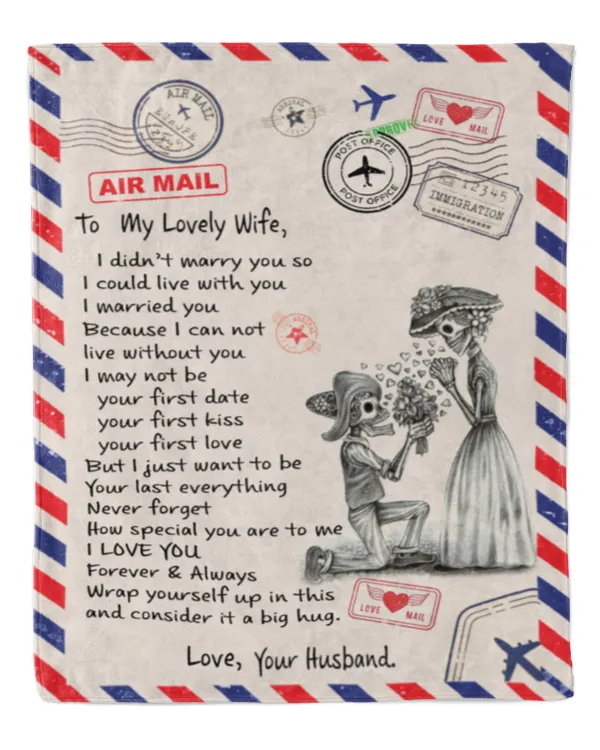 AIR MAIL
EUROPE
12345
LOVE MAIL
APPROVE
POST OFFICE
POST OFFICE
12345
IMMIGRATION
AIR MAIL
To My Lovely Wife,
I didn't marry you so
I could live with you
I married you
Because I can not
live without you
I may not be
your first date
your first kiss
your first love
But I just want to be
Your last everything
Never forget
How special you are to me
I LOVE YOU
Forever & Always
Wrap yourself up in this
and consider it a big hug.
LOVE MAIL
Love, Your Husband.